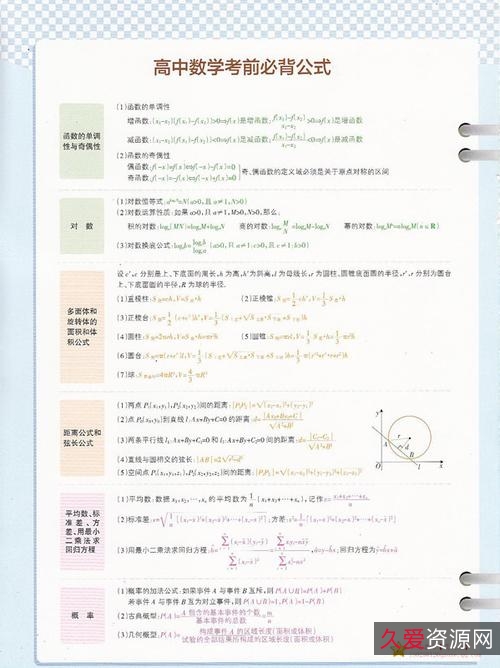 高中数学考前必背公式
函数的单调
性与奇偶性
(1)函数的单调性
增函数:(x₁-x₂)[f(x₁)-f(x₂)]>0⇔f(x)是增函数; f(x₁)-f(x₂)/x₁-x₂>0⇔f(x)是增函数
减函数:(x₁-x₂)[f(x₁)-f(x₂)]<0⇔f(x)是减函数; f(x₁)-f(x₂)/x₁-x₂<0⇔f(x)是减函数
(2)函数的奇偶性
偶函数:f(-x)=f(x)⇔f(-x)-f(x)=0
奇函数:f(-x)=-f(x)⇔f(-x)+f(x)=0
奇、偶函数的定义域必须是关于原点对称的区间
对 数
(1)对数恒等式:
(2)对数运算性质:如果a>0,且a≠1,M>0,N>0,那么,
积的对数:logₐ(MN)=logₐM+logₐN 商的对数:logₐM/N=logₐM-logₐN 幂的对数:logₐMⁿ=nlogₐM(n∈R)
(3)对数换底公式:logₐb=log꜀b/log꜀a(a>0,且a≠1;c>0,且c≠1;b>0)
多面体和
旋转体的
面积和体
积公式
设c′,c分别是上、下底面的周长,h为高,h′为斜高,l为母线长,r为圆柱,圆锥底面圆的半径,r′,r分别为圆台
上、下底面圆的半径,R为球的半径.
(1)直棱柱:S侧=ch,V=S底·h (2)正棱锥:S侧=1/2ch′,V=1/3S底·h
(3)正棱台:S侧=1/2(c+c′)h′,V=1/3
(4)圆柱:S侧=2πrh,V=S底·h=πr²h (5)圆锥:S侧=πrl,V=1/3S底·h=1/3πr²h
(6)圆台:S侧=π(r+r′)l,V=1/3
(7)球:S球面=4πR²,V=4/3πR³
距离公式和
弦长公式
(1)两点P₁(x₁,y₁),P₂(x₂,y₂)间的距离:|P₁P₂|=√(x₂-x₁)²+(y₂-y₁)²
(2)点P₀(x₀,y₀)到直线l:Ax+By+C=0的距离:d=|Ax₀+By₀+C|/√A²+B²
(3)两条平行线l₁:Ax+By+C₁=0和l₂:Ax+By+C₂=0间的距离:d=|C₂-C₁|/√A²+B²
(4)直线与圆相交的弦长:|AB|=2√r²-d²
(5)空间点P₁(x₁,y₁,z₁),P₂(x₂,y₂,z₂)间的距离:|P₁P₂|=√(x₂-x₁)²+(y₂-y₁)²+(z₂-z₁)²
y
A
r
d
B
O
l
x
平均数、标
准差、方
差、用最小
二乘法求
回归方程
(1)平均数:数据x₁,x₂,⋯,xₙ的平均数为1/n·(x₁+x₂+⋯+xₙ),记作
(2)标准差:s=√1/n[(x₁-x̄)²+(x₂-x̄)²+⋯+(xₙ-x̄)²];方差:s²=1/n[(x₁-x̄)²+(x₂-x̄)²+⋯+(xₙ-x̄)²]
(3)用最小二乘法求回归方程: ;回归方程为ŷ=b̂x+â
概 率
(1)概率的加法公式:如果事件A与事件B互斥,则P(A∪B)=P(A)+P(B)
若事件A与事件B互为对立事件,则P(A∪B)=1,P(A)=1-P(B)
(2)古典概型:P(A)=A包含的基本事件的个数/基本事件的总数=m/n
(3)几何概型:P(A)=构成事件A的区域长度(面积或体积)/试验的全部结果所构成的区域长度(面积或体积)
久爱资源网